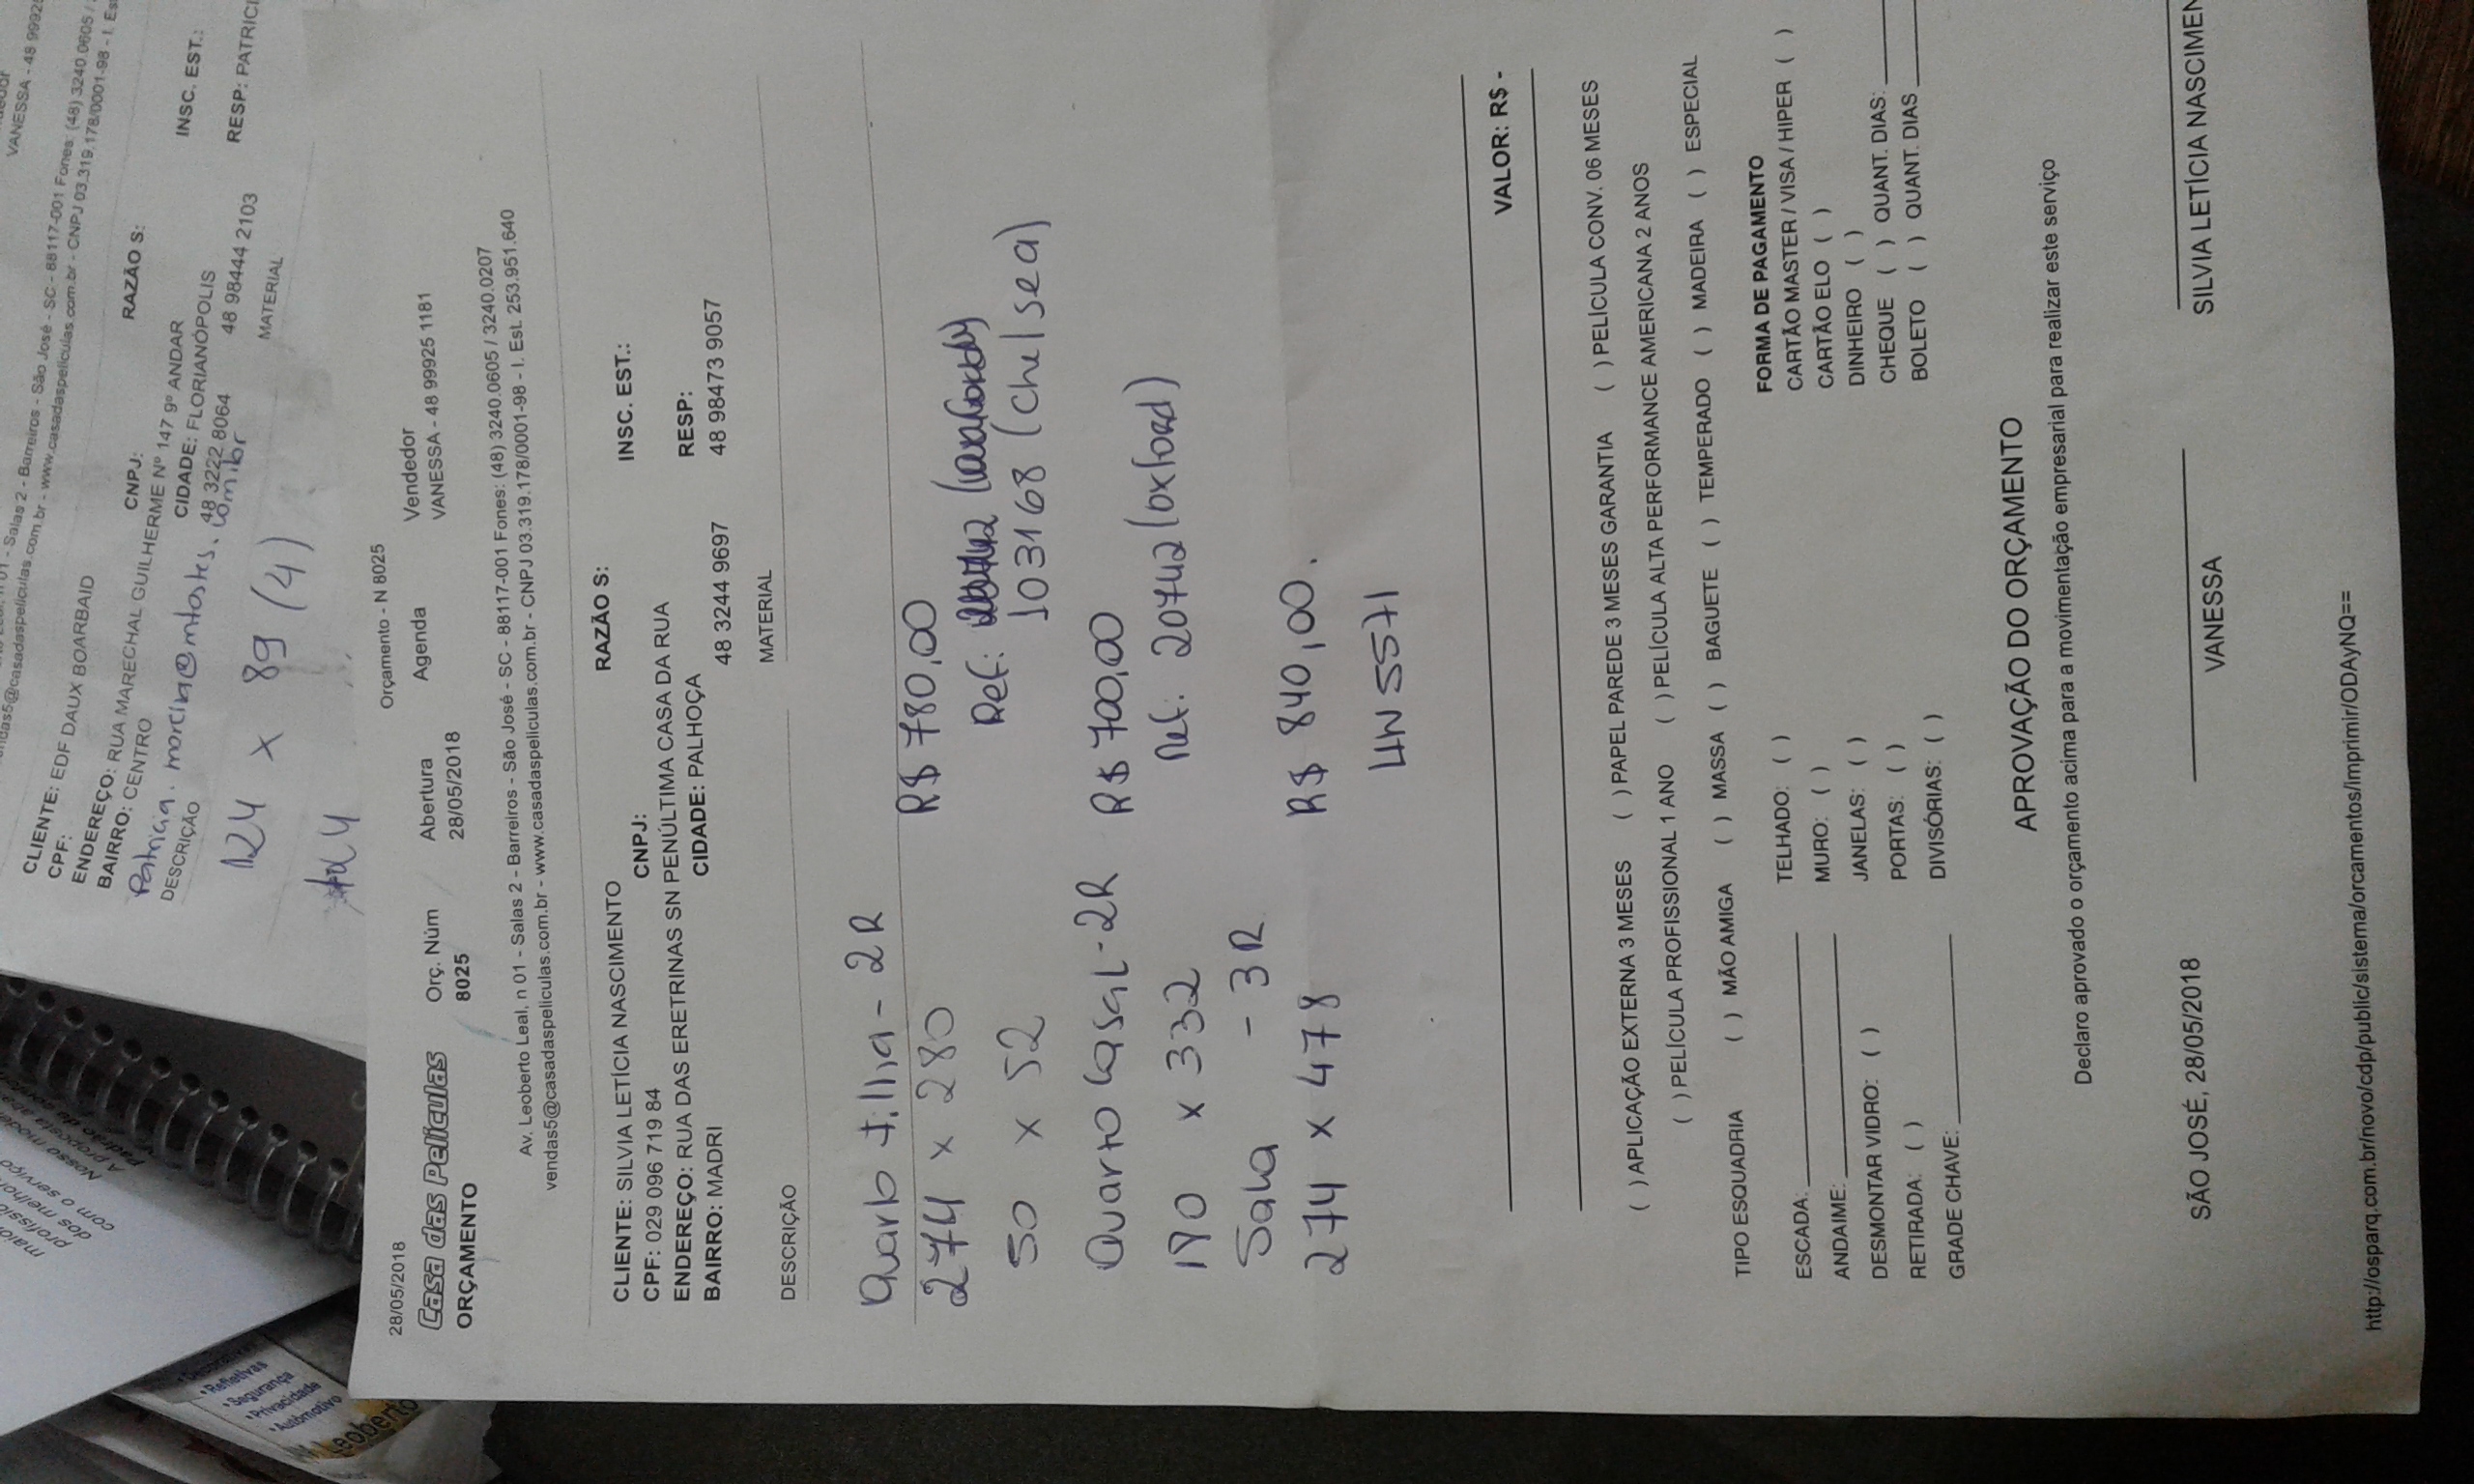 VANESSA - 48 9992
01 - Salas 2 - Barreiros - São José - SC - 88117-001 Fones: (48) 3240.0605 /
vendas5@casadaspeliculas.com.br - www.casadaspeliculas.com.br - CNPJ 03.319.178/0001-98 - I. Es
CLIENTE: EDF DAUX BOARBAID RAZÃO S:
CPF: CNPJ: INSC. EST.:
ENDEREÇO: RUA MARECHAL GUILHERME Nº 147 9º ANDAR
BAIRRO: CENTRO CIDADE: FLORIANÓPOLIS RESP: PATRICI
48 3222 8064 48 98444 2103
DESCRIÇÃO MATERIAL
124 x 89 (4)
28/05/2018 Orçamento - N 8025
Casa das Películas Orç. Núm Abertura Agenda Vendedor
ORÇAMENTO 8025 28/05/2018 VANESSA - 48 99925 1181
Av. Leoberto Leal, n 01 - Salas 2 - Barreiros - São José - SC - 88117-001 Fones: (48) 3240.0605 / 3240.0207
vendas5@casadaspeliculas.com.br - www.casadaspeliculas.com.br - CNPJ 03.319.178/0001-98 - I. Est. 253.951.640
CLIENTE: SILVIA LETÍCIA NASCIMENTO RAZÃO S:
CPF: 029 096 719 84 CNPJ: INSC. EST.:
ENDEREÇO: RUA DAS ERETRINAS SN PENÚLTIMA CASA DA RUA
BAIRRO: MADRI CIDADE: PALHOÇA RESP:
48 3244 9697 48 98473 9057
DESCRIÇÃO MATERIAL
Quarto filha - 2R
274 x 280 R$ 780,00
50 x 52 Ref:
103168 (chelsea)
Quarto Casal - 2R R$ 700,00
190 x 332 Ref: 20742 (oxford)
Sala - 3R
274 x 478 R$ 840,00.
UN 5571
VALOR: R$ -
( ) APLICAÇÃO EXTERNA 3 MESES ( ) PAPEL PAREDE 3 MESES GARANTIA ( ) PELÍCULA CONV. 06 MESES
( ) PELÍCULA PROFISSIONAL 1 ANO ( ) PELÍCULA ALTA PERFORMANCE AMERICANA 2 ANOS
TIPO ESQUADRIA ( ) MÃO AMIGA ( ) MASSA ( ) BAGUETE ( ) TEMPERADO ( ) MADEIRA ( ) ESPECIAL
ESCADA: TELHADO: ( ) FORMA DE PAGAMENTO
ANDAIME: MURO: ( ) CARTÃO MASTER / VISA / HIPER ( )
DESMONTAR VIDRO: ( ) JANELAS: ( ) CARTÃO ELO ( )
RETIRADA: ( ) PORTAS: ( ) DINHEIRO ( )
GRADE CHAVE: DIVISÓRIAS: ( ) CHEQUE ( ) QUANT. DIAS:
BOLETO ( ) QUANT. DIAS
APROVAÇÃO DO ORÇAMENTO
Declaro aprovado o orçamento acima para a movimentação empresarial para realizar este serviço
SÃO JOSÉ, 28/05/2018 VANESSA SILVIA LETÍCIA NASCIMEN
http://osparq.com.br/novo/cdp/public/sistema/orcamentos/imprimir/ODAyNQ==
• Refletivas
• Segurança
• Privacidade
• Automotivo
Leoberto